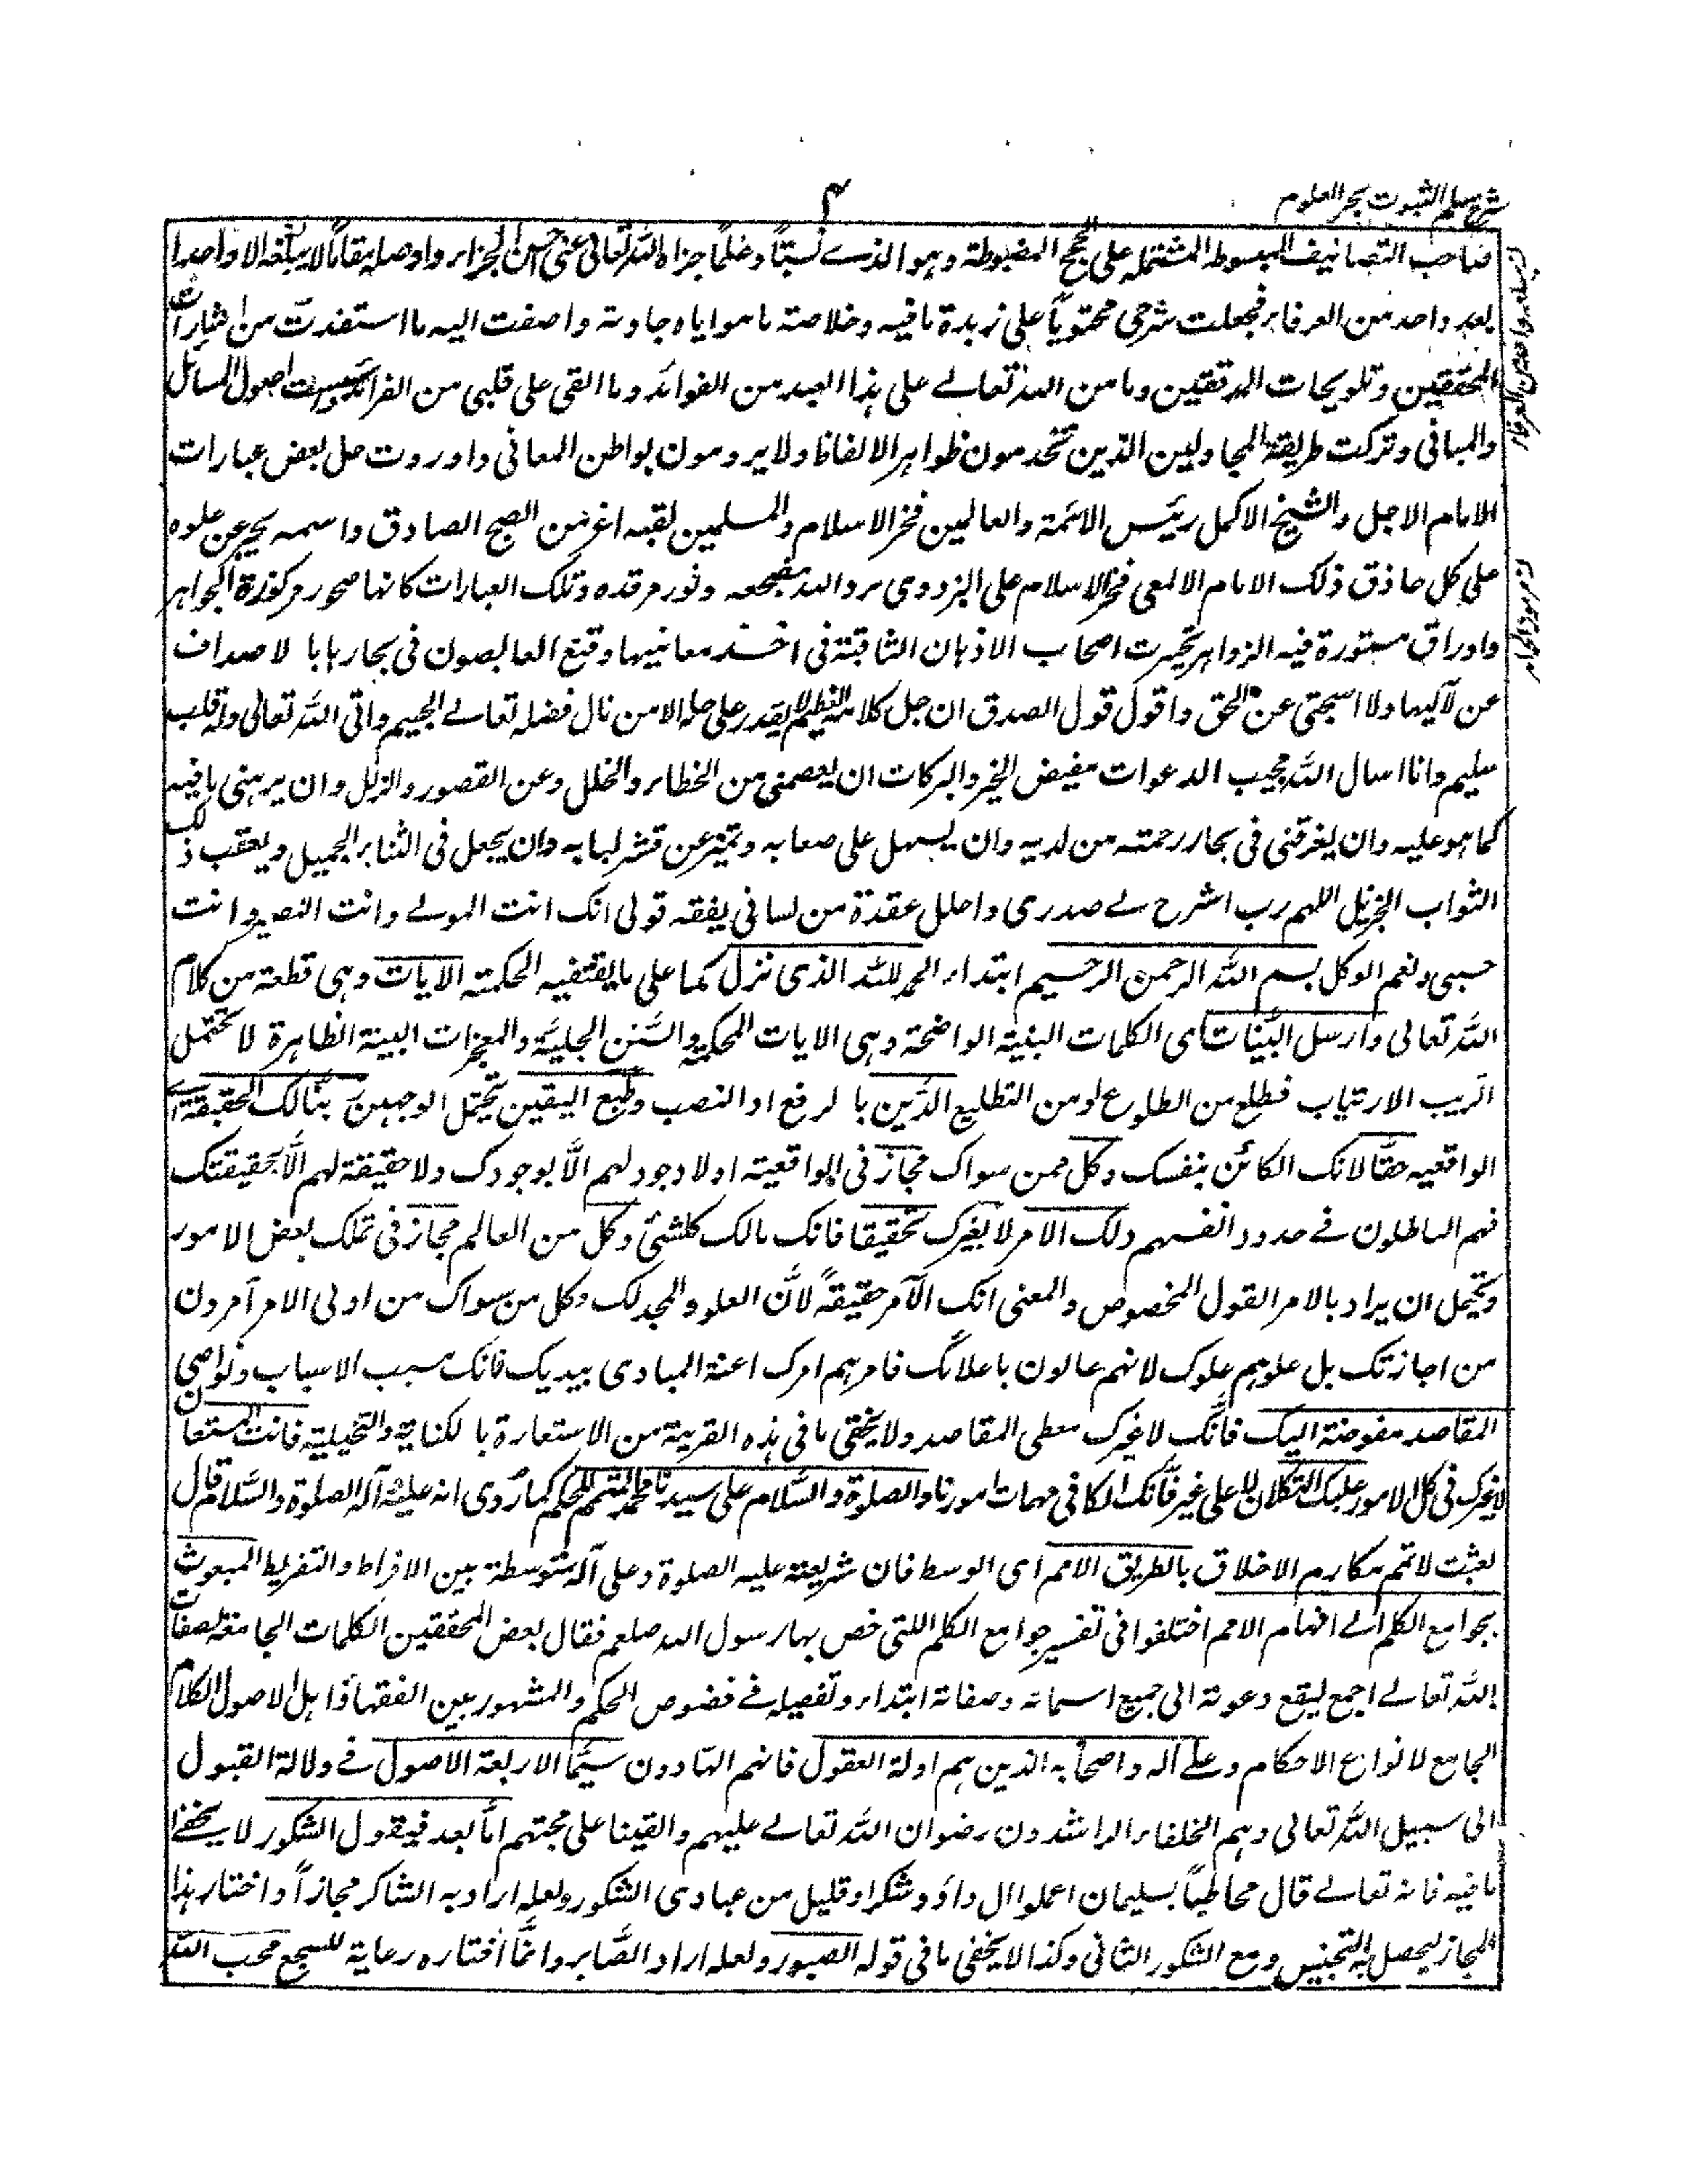 شرح مسلم الثبوت بحر العلوم
۴
صاحب التصانيف المبسوطة المشتملة على الحجج المضبوطة وهو الذے نسبًا وعلمًا جزاه الله تعالى عنى احسن الجزاء واوصله مقامًا لا يبلغه الا واحدا
بعد واحد من العرفاء فجعلت شرحى محتويًا على زبدة ما فيه وخلاصة ما هو اياه حاوته واضفت اليه ما استفدت من اشارات
المحققين وتلويحات المدققين وما من الله تعالے على هذا العبد من الفوائد وما القى على قلبى من الفرائد اصول المسائل
والمبانى وتركت طريقة المجادلين الذين تخدمون ظواهر الالفاظ ولا يرومون بواطن المعانى واوردت حل بعض عبارات
الامام الاجل والشيخ الاكمل رئيس الائمة والعالمين فخر الاسلام والمسلمين لقبه اغر من الصبح الصادق واسمه يخبر عن علوه
على كل حاذق ذلك الامام الالمعى فخر الاسلام على البزدوى برد الله مضجعه ونور مرقده وتلك العبارات كانها صخور مركوزة الجواهر
واوراق مستورة فيه الزواهر تحيرت اصحاب الاذهان الثاقبة فى اخذ معانيها وقنع الغائصون فى بحارها با لاصداف
عن لآليها ولا استحيى عن الحق واقول قول الصدق ان جل كلامه العظيم لا يقدر على حله الا من نال فضله تعالے الجسيم واتى الله تعالى وله قلب
سليم وانا اسال الله مجيب الدعوات مفيض الخير والبركات ان يعصمنى من الخطاء والخلل وعن القصور والزلل وان يرينى ما فيه
كما هو عليه وان يغرقنى فى بحار رحمته من لديه وان يسهل على صعابه وتميز عن قشر لبابه وان يجعل فى الثناء الجميل ويعقب ذلك
الثواب الجزيل اللهم رب اشرح لے صدرى واحلل عقدة من لسانى يفقه قولى انك انت المولے وانت النصير وانت
حسبى ونعم الوكل بسم الله الرحمن الرحيم ابتداء الحمد لله الذى نزل كما على ما يقتضيه الحكمة الايات وهى قطعة من كلام
الله تعالى وارسل البينات اى الكلمات البنية الواضحة وهى الايات المحكمة والسنن الجلية والمعجزات البينة الظاهرة لا تحتمل
الريب الارتياب فطلع من الطلوع او من التطليع الدين با لرفع او النصب وطبع اليقين تحتمل الوجهين ربنا لك الحقيقة اے
الواقعية حقًا لانك الكائن بنفسك وكل ممن سواك مجاز فى الواقعية اولا وجود لهم الا بوجودك ولا حقيقة لهم الا بحقيقتك
فهم الباطلون فے حدود انفسهم ولك الامر لا بغيرك تحقيقا فانك مالك كلشئ وكل من العالم مجاز فى تملك بعض الامور
وتحتمل ان يراد بالامر القول المخصوص والمعنى انك الآمر حقيقةً لان العلو والمجد لك وكل من سواك من اولى الامر آمرون
من اجازتك بل علوهم علوك لانهم عالون باعلائك فامرهم امرك اعنة المبادى بيديك فانك مسبب الاسباب ونواصى
المقاصد مفوضة اليك فانك لا غيرك معطى المقاصد ولا يخفى ما فى هذه القرينة من الاستعارة با لكناية والتخيلية فانت المستعان
لا غيرك فى كل الامور وعليك التكلان لا على غير فانك الكافى مهمات امورنا والصلوة والسلام على سيدنا محمد المتمم للحكم كما روى انه عليه وآله الصلوة والسلام قال
بعثت لاتمم مكارم الاخلاق بالطريق الامم اى الوسط فان شريعته عليه الصلوة وعلى آله متوسطة بين الافراط والتفريط المبعوث
بجوامع الكلم الے افهام الامم اختلفوا فى تفسير جوامع الكلم اللتى خص بها رسول الله صلعم فقال بعض المحققين الكلمات الجامعة لصفات
الله تعالے اجمع ليقع دعوته الى جميع اسمائه وصفاته ابتداء وتفصيله فے فصوص الحكم والمشهور بين الفقهاء اهل الاصول الكلام
الجامع لانواع الاحكام وعلے آله واصحابه الذين هم ادلة العقول فانهم الهادون سيما الاربعة الاصول فے دلالة القبول
الى سبيل الله تعالى وهم الخلفاء الراشدون رضوان الله تعالے عليهم والقينا على محبتهم اما بعد فيقول الشكور لا يخفے
ما فيه فانه تعالے قال مخاطبًا بسليمان اعملوا ال داؤد شكرا وقليل من عبادى الشكور ولعله اراد به الشاكر مجازاً واختار هذا
المجاز ليحصل به التجنيس ومع الشكور الثانى وكذا لا يخفى ما فى قوله الصبور ولعله اراد الصابر وانما اختاره رعاية للسجع محب الله